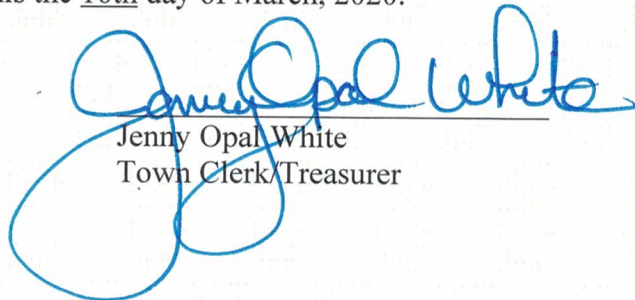 the 10th day of March, 2020.
Jenny Opal White
Jenny Opal White
Town Clerk/Treasurer